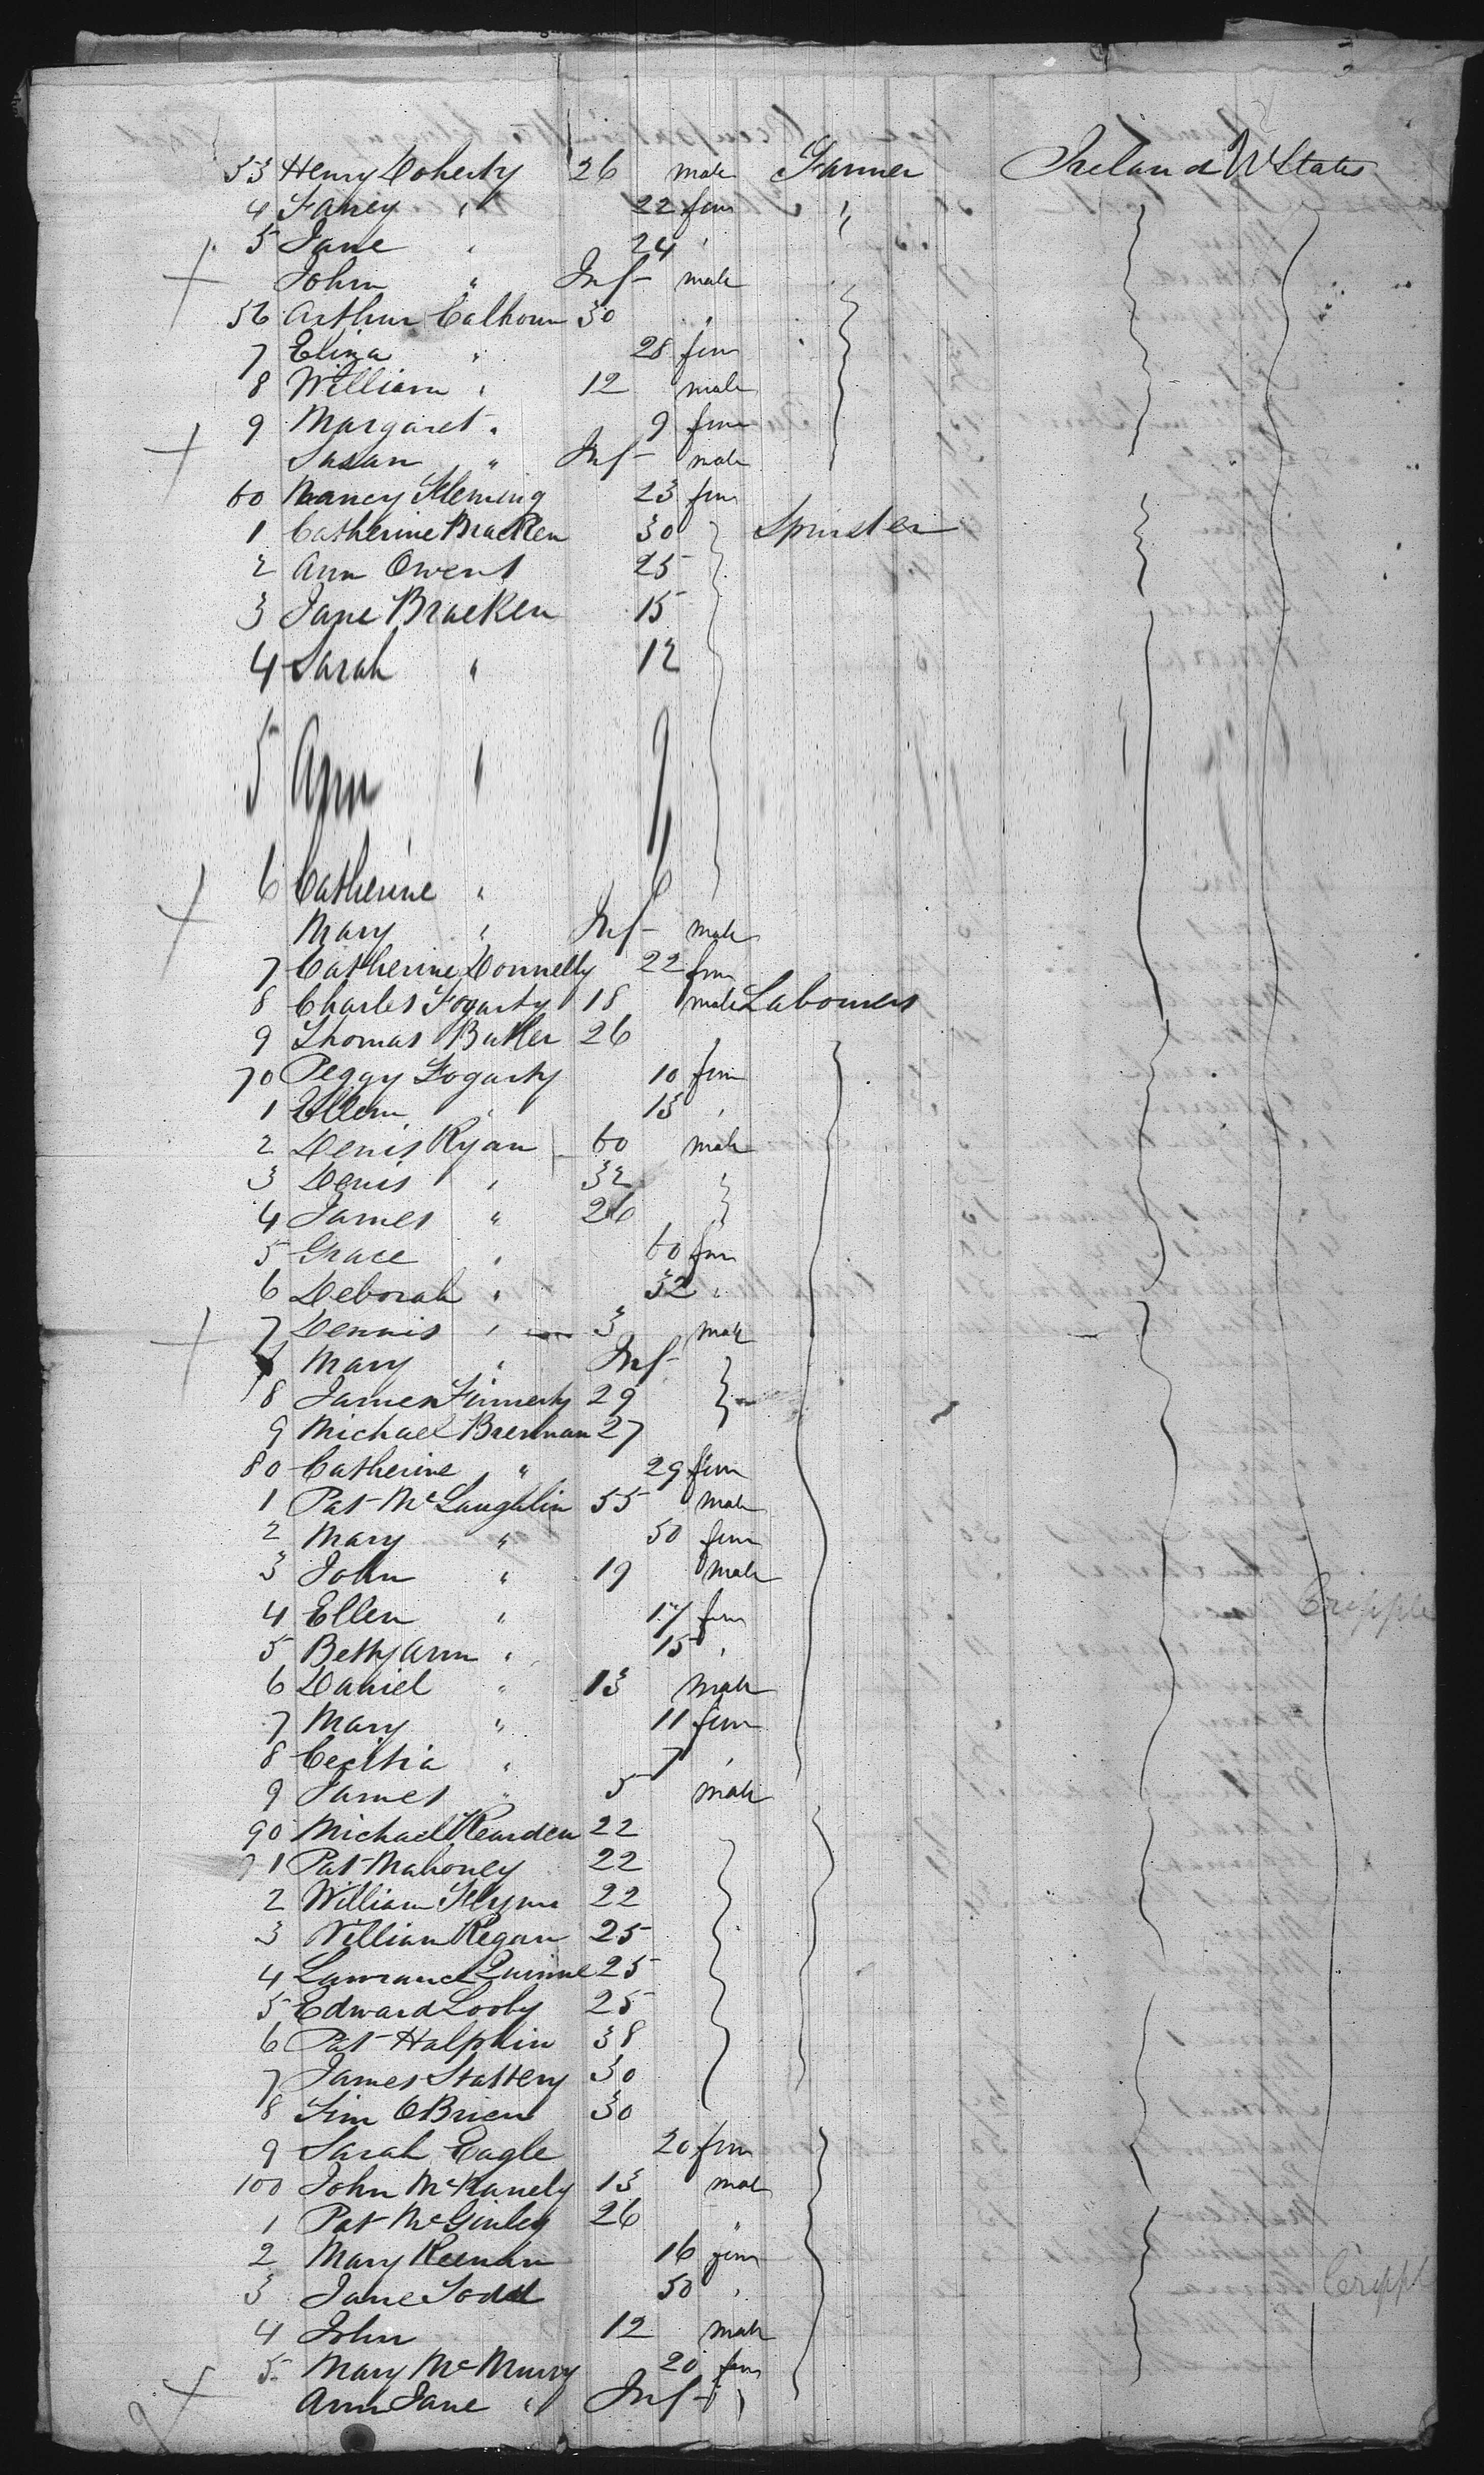 53 Henry Doherty 26 male Farmer Ireland U States
4 Fancy " 22 fem "
5 Jane " 24 "
John " Inf male
56 Arthur Calhoun 30 "
7 Eliza " 28 fem
8 William " 12 male
9 Margaret " 9 fem
Susan " Inf male
60 Nancy Fleming 23 fem
1 Catherine Bracken 30 Spinster
2 Ann Owens 25
3 Jane Bracken 15
4 Sarah " 12
5 Ann " 9
6 Catherine " 6
Mary " Inf male
7 Catherine Donnelly 22 fem
8 Charles Fogarty 18 male Labourers
9 Thomas Butler 26 "
70 Peggy Fogarty 10 fem
1 Ellen " 13 "
2 Denis Ryan 60 male
3 Denis " 32
4 James " 26
5 Grace " 60 fem
6 Deborah " 32 "
7 Dennis " 3 male
Mary " Inf
8 James Finnerty 29
9 Michael Brennan 27
80 Catherine " 29 fem
1 Pat McLaughlin 55 male
2 Mary " 50 fem
3 John " 19 male
4 Ellen " 17 fem Cripple
5 Betty Ann " 15 "
6 Daniel " 13 male
7 Mary " 11 fem
8 Cecilia " 7 "
9 James " 5 male
90 Michael Rearden 22
1 Pat Mahoney 22
2 William Flynn 22
3 William Regan 25
4 Lawrance Quinne 25
5 Edward Looby 25
6 Pat Halphin 38
7 James Stattery 30
8 Tim OBrien 30
9 Sarah Eagle 20 fem
100 John McKanely 13 male
1 Pat McGinley 26 "
2 Mary Keenan 16 fem
3 Jane Todd 50 " Crippl
4 John 12 male
5 Mary McMurry 20 fem
Ann Jane " Inf "